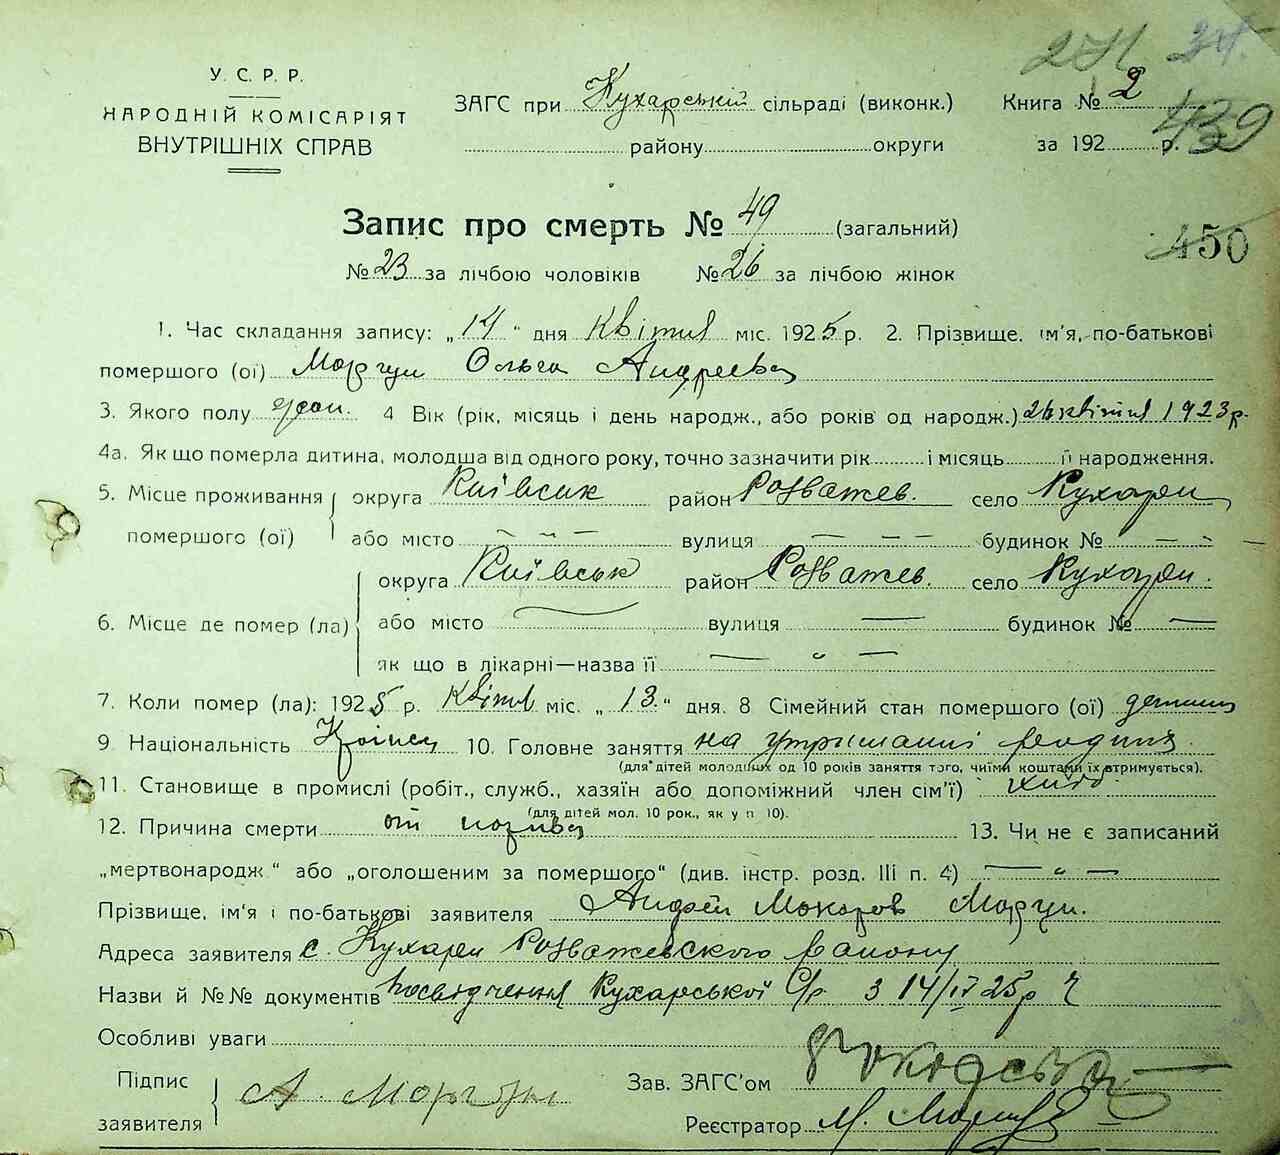 271 34.
У. С. Р. Р.
НАРОДНІЙ КОМІСАРІЯТ
ВНУТРІШНІХ СПРАВ
ЗАГС при Кухарській сільраді (виконк.)
району округи
Книга № 2
за 192 р.
439
450
Запис про смерть № 49 (загальний)
№ 23 за лічбою чоловіків № 26 за лічбою жінок
1. Час складання запису: „14“ дня квітня міс. 1925 р. 2. Прізвище, ім'я, по-батькові
помершого (ої) Моргун Ольга Андреєва
3. Якого полу 4 Вік (рік, місяць і день народж., або років од народж.) 26 квітня 1923 р.
4а. Як що померла дитина, молодша від одного року, точно зазначити рік і місяць її народження.
5. Місце проживання помершого (ої) округа Київськ район Розважев. село Кухари
або місто вулиця будинок №
6. Місце де помер (ла) округа Київськ район Розважев. село Кухари
або місто вулиця будинок №
як що в лікарні—назва її
7. Коли помер (ла): 1925 р. квітня міс. „13.“ дня. 8 Сімейний стан помершого (ої)
9 Національність 10. Головне заняття на утриманні
(для дітей молодших од 10 років заняття того, чиїми коштами їх втримується).
11. Становище в промислі (робіт., служб., хазяїн або допоміжний член сім'ї)
(для дітей мол. 10 рок., як у п 10).
12. Причина смерти от 13. Чи не є записаний
„мертвонародж“ або „оголошеним за помершого“ (див. інстр. розд. III п. 4) — „ —
Прізвище, ім'я і по-батькові заявителя Андрей Макаров Моргун.
Адреса заявителя с. Кухари Розважевского району
Назви й №№ документів Посвідчення Кухарської С/р з 14/IV 25р
Особливі уваги
Підпис заявителя А. Моргун
Зав. ЗАГС'ом
Реєстратор М.